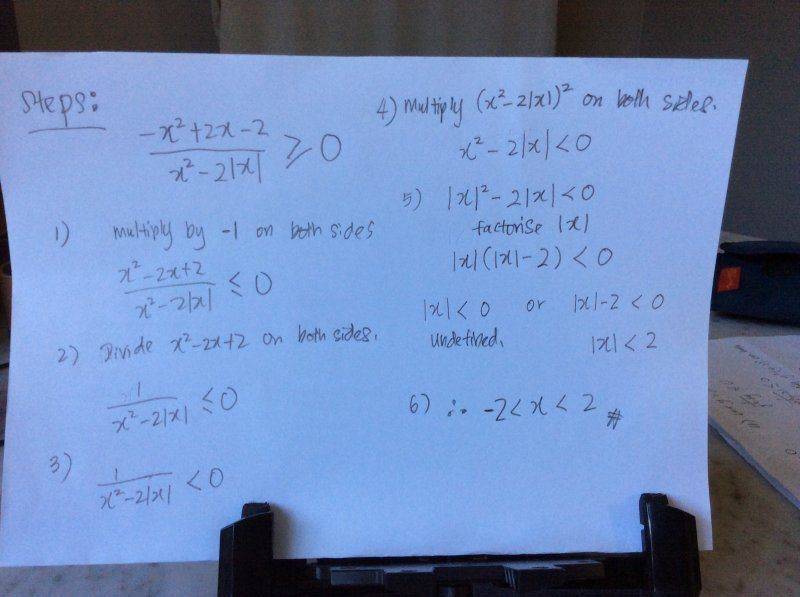 Steps:
-x²+2x-2 / x²-2|x| ≥ 0
1) multiply by -1 on both sides
x²-2x+2 / x²-2|x| ≤ 0
2) Divide x²-2x+2 on both sides.
1 / x²-2|x| ≤ 0
3) 1 / x²-2|x| < 0
4) Multiply (x²-2|x|)² on both sides.
x²-2|x| < 0
5) |x|²-2|x| < 0
factorise |x|
|x|(|x|-2) < 0
|x| < 0 or |x|-2 < 0
undefined. |x| < 2
6) ∴ -2 < x < 2 #